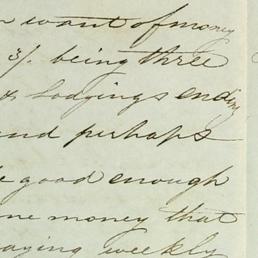 want of money
3/. being three
Lodgings ending
and perhaps
good enough
money that
paying weekly